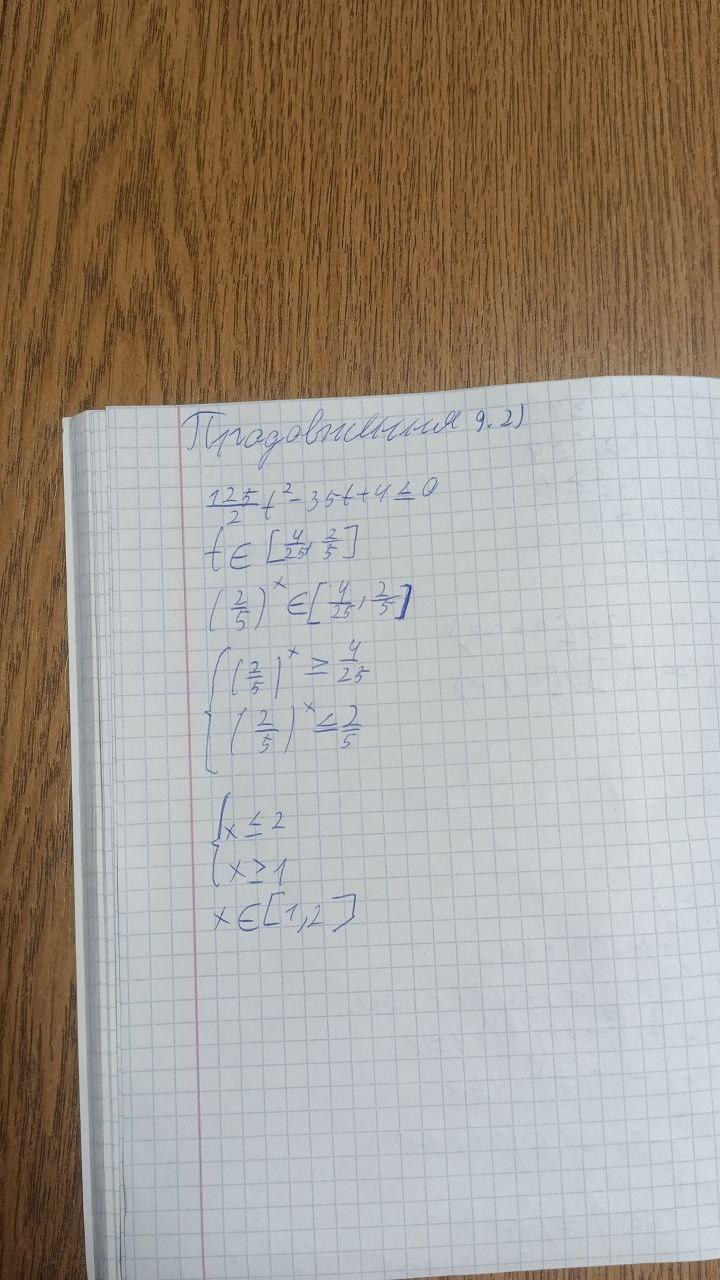 Продовження 9.2)
125/2 t² - 35t + 4 ≤ 0
t ∈ [4/25, 2/5]
(2/5)^x ∈ [4/25, 2/5]
(2/5)^x ≥ 4/25
(2/5)^x ≤ 2/5
x ≤ 2
x ≥ 1
x ∈ [1,2]